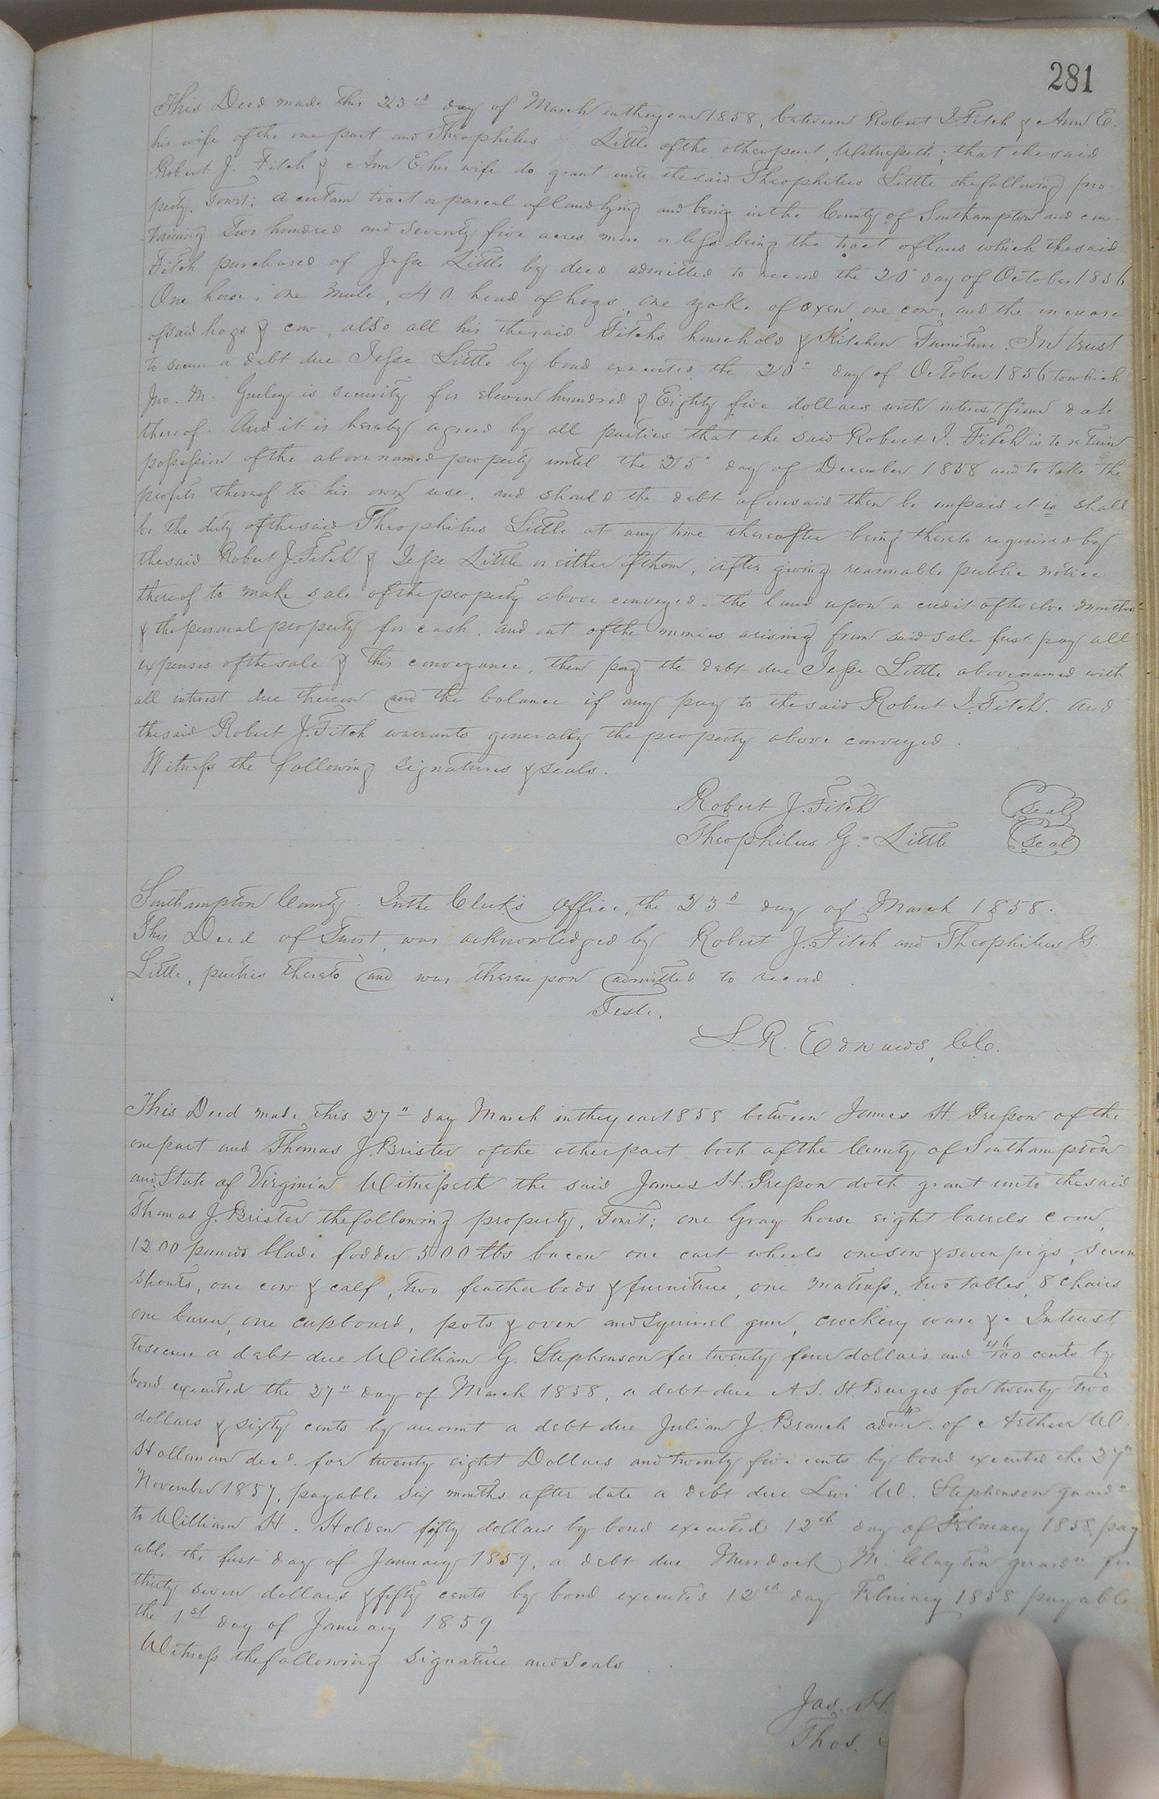 281
This Deed made this 23rd day of March in the year 1858, between Robert J. Fitch & Ann E.
his wife of the one part and Theophilus Little of the other part, Witnesseth; that the said
Robert J. Fitch & Ann E his wife do grant unto the said Theophilus Little the following pro
perty, Towit; a certain tract or parcel of land lying and being in the County of Southampton and con
taining Two hundred and Seventy five acres more or less being the tract of land which the said
Fitch purchased of Jesse Little by deed admitted to record the 20 day of October 1856
One horse, one mule, 40 head of hogs, one yoke of oxen, one cow, and the increase
of said hogs & cow, also all his the said Fitchs household & Kitchen Furniture. In trust
to secure a debt due Jesse Little by bond executed the 20th day of October 1856 to which
Jno. M. Gurley is security for eleven hundred & Eighty five dollars with interest from date
thereof. And it is hereby agreed by all parties that the said Robert J. Fitch is to retain
possession of the above named property until the 25th day of December 1858 and to take the
profits thereof to his own use, and should the debt aforesaid then be unpaid it is shall
be the duty of the said Theophilus Little at any time thereafter being thereto required by
the said Robert J. Fitch & Jesse Little or either of them, after giving reasonable public notice
thereof to make sale of the property above conveyed - the land upon a credit of twelve months
& the personal property for cash, and out of the monies arising from said sale first pay all
expenses of the sale & this conveyance, then pay the debt due Jesse Little above named with
all interest due thereon and the balance if any pay to the said Robert J. Fitch. And
the said Robert J. Fitch warrants generally the property above conveyed.
Witness the following signatures & seals.
Robert J. Fitch (seal)
Theophilus G. Little (seal)
Southampton County. In the Clerk's Office, the 23d day of March 1858.
This Deed of Trust was acknowledged by Robert J. Fitch and Theophilus G.
Little, parties thereto and was thereupon admitted to record.
Teste.
L. R. Edwards, C.C.
This Deed made this 27th day March in the year 1858 between James H. Presson of the
one part and Thomas J. Brister of the other part both of the County of Southampton
and State of Virginia Witnesseth the said James H. Presson doth grant unto the said
Thomas J. Brister the following property, Towit; one Gray horse eight barrels corn,
1200 pounds blade fodder 500 lbs bacon one cart wheels one sow & seven pigs, seven
shoats, one cow & calf, two feather beds & furniture, one matrass, two tables, 8 chairs
one bureau, one cupboard, pots & oven and squirrel gun, crockery ware &c In trust
to secure a debt due William G. Stephenson for twenty four dollars and 46/100 cents by
bond executed the 27th day of March 1858, a debt due A. S. H. Burges for twenty two
dollars & sixty cents by account a debt due Julian J. Branch admr. of Arthur W.
Holleman decd. for twenty eight Dollars and twenty five cents by bond executed the 27th
November 1857, payable six months after date a debt due Levi W. Stephenson guardn
to William H. Holden fifty dollars by bond executed 12th day of February 1858, pay
able the first day of January 1859, a debt due Murdock M. Clayton guardn for
thirty seven dollars & fifty cents by bond executed 12th day February 1858 payable
the 1st day of January 1859.
Witness the following signature and Seals
Jas. H
Thos.